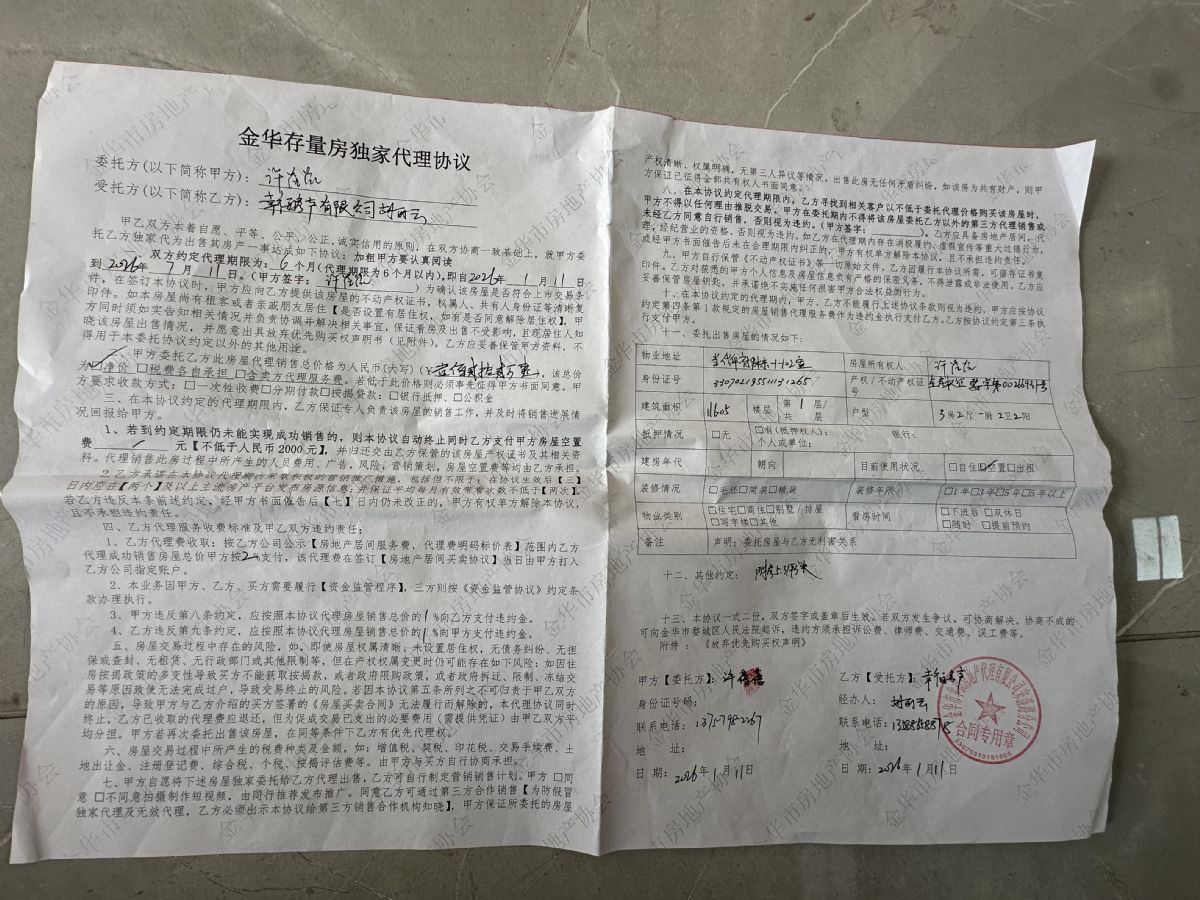 金华存量房独家代理协议
委托方(以下简称甲方):
受托方(以下简称乙方): 有限公司
甲乙双方本着自愿、平等、公平、公正,诚实信用的原则,在双方协商一致基础上,就甲方委
托乙方独家代为出售其房产一事达成如下协议:加粗甲方要认真阅读
一、双方约定代理期限为:6个月(代理期限为6个月以内),即自2026年1月11日
到2026年7月11日。(甲方签字: )为确认该房屋是否符合上市交易条
件,在签订本协议时,甲方应向乙方提供该房屋的不动产权证书,权属人、共有人身份证等清晰复
印件。如本房屋尚有租客或者亲戚朋友居住【是否设置有居住权,如有是否同意解除居住权】,甲
方同时须如实告知相关情况并负责协调并解决相关事宜,保证看房及出售不受影响,且现居住人知
晓该房屋出售情况,并愿意出具放弃优先购买权声明书(见附件)。乙方应妥善保管甲方资料,不
得用于本委托协议约定以外的其他用途。
二、甲方委托乙方此房屋代理销售总价格为人民币(大写)(¥ ),该总价
为☑净价 ☐税费各自承担 ☐含卖方代理服务费。若低于此价格则必须事先征得甲方书面同意。甲
方要求收款方式:☐一次性收费☐分期付款☐按揭贷款:☐银行抵押、☐公积金
三、在本协议约定的代理期限内,乙方保证专人负责该房屋的销售工作,并及时将销售进展情
况回报给甲方。
1、若到约定期限仍未能实现成功销售的,则本协议自动终止同时乙方支付甲方房屋空置
费 / 元【不低于人民币2000元】,并归还交由乙方保管的该房屋产权证书及其相关资
料。代理销售此房过程中所产生的人员费用、广告,风险,营销策划,房屋空置费等均由乙方承担。
2、乙方承诺在本协议代理期内采取积极的营销推广措施,包括但不限于:在协议生效后【三】
日内应在【两个】及以上主流房产平台发布房源信息;并保证平均每月有效带看次数不低于【两次】。
若乙方违反本条前述约定,经甲方书面催告后【七】日内仍未改正的,甲方有权单方解除本协议,
且不承担违约责任。
四、乙方代理服务收费标准及甲乙双方违约责任:
1、乙方代理费收取:按乙方公司公示【房地产居间服务费,代理费明码标价表】范围内乙方
代理成功销售房屋总价甲方按2%支付,该代理费在签订【房地产居间买卖协议】当日由甲方打入
乙方公司指定账户。
2、本业务因甲方、乙方、买方需要履行【资金监管程序】,三方则按《资金监管协议》约定条
款办理执行。
3、甲方违反第八条约定,应按照本协议代理房屋销售总价的1%向乙方支付违约金。
4、乙方违反第九条约定,应按照本协议代理房屋销售总价的1%向甲方支付违约金。
五、房屋交易过程中存在的风险,如:即使房屋权属清晰、未设置居住权,无债务纠纷、无担
保或查封、无租赁、无行政部门或其他限制等,但在产权权属变更时仍可能存在如下风险:如因住
房按揭政策的多变性导致买方不能获取按揭款,或者政府限购政策,或者政府拆迁、限制、冻结交
易等原因致使无法完成过户,导致交易终止的风险。若因本协议第五条所列之不可归责于甲乙双方
的原因,导致甲方与乙方介绍的买方签署的《房屋买卖合同》无法履行而解除的,本代理协议同时
终止,乙方已收取的代理费应退还,但为促成交易已支出的必要费用(需提供凭证)由甲乙双方平
均分担。甲方若再次委托出售该房屋,在同等条件下乙方有优先代理权。
六、房屋交易过程中所产生的税费种类及金额,如:增值税、契税、印花税、交易手续费、土
地出让金、注册登记费、综合税、个税、按揭评估费等。由甲方与买方自行协商承担。
七、甲方自愿将下述房屋独家委托给乙方代理出售,乙方可自行制定营销销售计划。甲方 ☐同
意 ☐不同意拍摄制作短视频,由同行推荐发布推广。同意乙方可通过第三方合作销售【为防假冒
独家代理及无效代理,乙方必须出示本协议给第三方销售合作机构知晓】,甲方保证所委托的房屋
产权清晰、权属明确,无第三人异议等情况。出售此房无任何矛盾纠纷,如该房为共有财产,则甲
方保证已征得全部共有权人书面同意。
八、在本协议约定代理期限内,乙方寻找到相关客户以不低于委托代理价格购买该房屋时,
甲方不得以任何理由推脱交易。甲方在委托期内不得将该房屋委托乙方以外的第三方代理销售或
未经乙方同意自行销售,否则视为违约。(甲方签字: )。乙方应具备房地产居间,代
理,经纪营业的资格,否则视为违约。如乙方在代理期内存在消极履约、虚假宣传等重大过错行为,
或经甲方书面催告后未在合理期限内纠正的,甲方有权单方解除本协议,且不承担违约责任。
九、甲方自行保管《不动产权证书》等一切原始文件。乙方因履行本协议所需,可留存证书复
印件。乙方对获悉的甲方个人信息及房屋信息负有严格的保密义务,不得泄露或非法使用。乙方应
妥善保管房屋钥匙,并承诺绝不实施任何损害甲方合法权益的行为。
十、在本协议约定的代理期内,甲方、乙方不能履行上述协议条款则视为违约。甲方应按协议
约定第四条第1款规定的房屋销售代理服务费作为违约金执行支付乙方。乙方按协议约定第三条执
行支付甲方。
十一、委托出售房屋的情况如下:
物业地址 1-102室 房屋所有权人
身份证号 产权/不动产权证号
建筑面积 116.05 楼层 第1层/共 层 户型 3房2厅一厨2卫2阳
抵押情况 ☐无 ☐有(抵押权人): 银行:
个人或单位:
建房年代 朝向 目前使用状况 ☐自住☑空置☐出租
装修情况 ☐毛坯☐简装☐精装 装修年限 ☐1年☐3年☐5年☐5年以上
物业类别 ☐住宅☐商住☐别墅/排屋 ☐写字楼☐其他 看房时间 ☐下班后 ☐双休日 ☐随时 ☐提前预约
备注 声明:委托房屋与乙方无利害关系
十二、其他约定:
十三、本协议一式二份,双方签字或盖章后生效。若双方发生争议,可协商解决,协商不成的
可向金华市婺城区人民法院起诉,违约方须承担诉讼费、律师费、交通费、误工费等。
附件:《放弃优先购买权声明》
甲方【委托方】:
身份证号码:
联系电话:13757982267
地 址:
日 期:2026年1月11日
乙方【受托方】:
经办人:
联系电话:
地 址:
日 期:2026年1月11日
合同专用章
金华市房地产协会